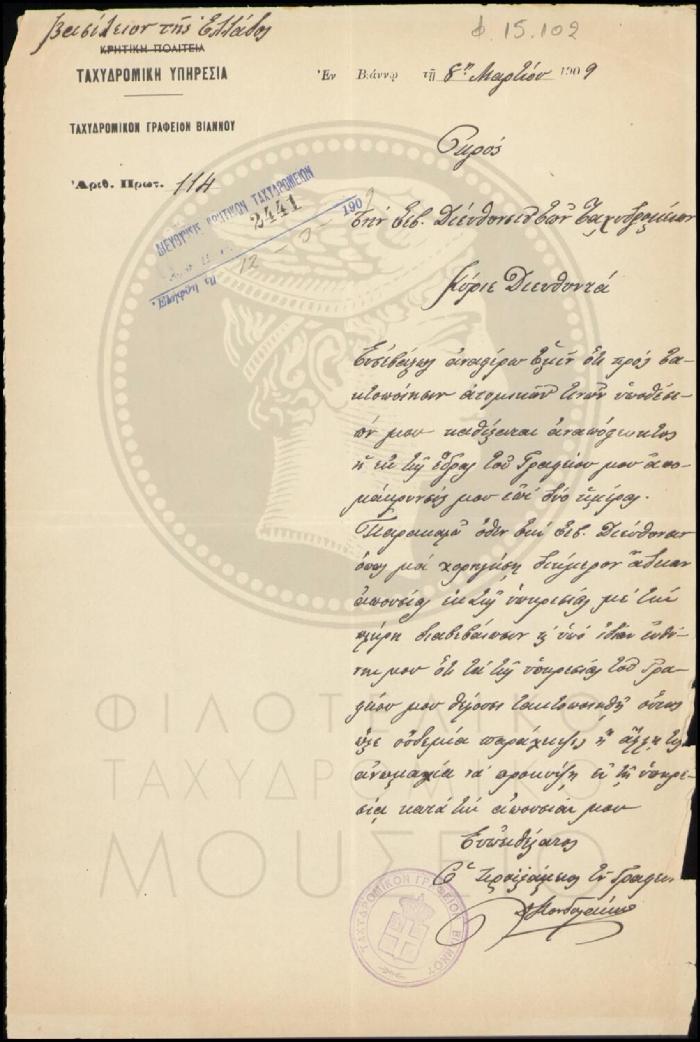 Βασίλειον τῆς Ἑλλάδος
Φ 15.102
ΚΡΗΤΙΚΗ ΠΟΛΙΤΕΙΑ
ΤΑΧΥΔΡΟΜΙΚΗ ΥΠΗΡΕΣΙΑ
Ἐν Βιάννῳ τῇ 8ῃ Μαρτίου 1909
ΤΑΧΥΔΡΟΜΙΚΟΝ ΓΡΑΦΕΙΟΝ ΒΙΑΝΝΟΥ
Ἀριθ. Πρωτ. 114
Πρός
ΔΙΕΥΘΥΝΣΙΣ ΚΡΗΤΙΚΩΝ ΤΑΧΥΔΡΟΜΕΙΩΝ
2441
1909
12 - 3 -
τὴν Σεβ. Διεύθυνσιν τῶν Ταχυδρομείων
Κύριε Διευθυντά
Εὐσεβάστως ἀναφέρω ὑμῖν ὅτι πρὸς τα-
κτοποίησιν ἀτομικῶν τινῶν ὑποθέσε-
ών μου καθίσταται ἀναπόφευκτος
ἡ ἐκ τῆς ἕδρας τοῦ Γραφείου μου ἀπο-
μάκρυνσίς μου ἐπὶ δύο ἡμέρας.
Παρακαλῶ ὅθεν τὴν Σεβ. Διεύθυνσιν
ὅπως μοὶ χορηγήσῃ διήμερον ἄδειαν
ἀπουσίας ἐκ τῆς ὑπηρεσίας μὲ τὴν
πλήρη διαβεβαίωσιν ὑπὸ ἰδίαν εὐθύ-
νην μου ὅτι τὰ τῆς ὑπηρεσίας τοῦ Γρα-
φείου μου θέλουσι τακτοποιηθῆ οὕτως
ὥστε οὐδεμία παράλειψις ἢ ἄλλη τις
ἀνωμαλία νὰ προκύψῃ ἐν τῇ ὑπηρε-
σίᾳ κατὰ τὴν ἀπουσίαν μου
Εὐπειθέστατος
Ὁ Προϊστάμενος τοῦ Γραφείου
ΤΑΧΥΔΡΟΜΙΚΟΝ ΓΡΑΦΕΙΟΝ ΒΙΑΝΝΟΥ
ΦΙΛΟΤΕΛΙΚΟ
ΤΑΧΥΔΡΟΜΙΚΟ
ΜΟΥΣΕΙΟ